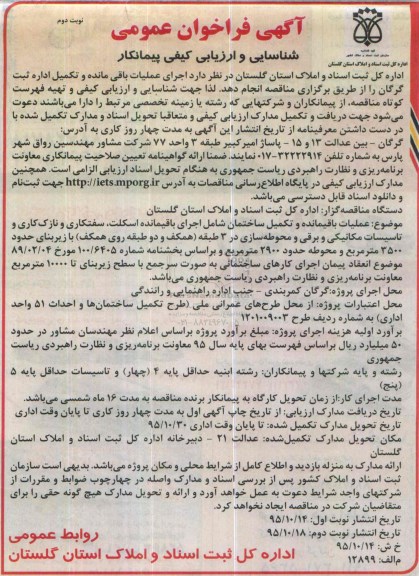 نوبت دوم
آگهی فراخوان عمومی
شناسایی و ارزیابی کیفی پیمانکار
اداره کل ثبت اسناد و املاک استان گلستان
اداره کل ثبت اسناد و املاک استان گلستان در نظر دارد اجرای عملیات باقی مانده و تکمیل اداره ثبت
گرگان را از طریق برگزاری مناقصه انجام دهد. لذا جهت شناسایی و ارزیابی کیفی و تهیه فهرست
کوتاه مناقصه، از پیمانکاران و شرکتهایی که رشته یا زمینه تخصصی مرتبط را دارا می‌باشند دعوت
می‌شود جهت دریافت و تکمیل مدارک ارزیابی کیفی و متعاقبا تحویل اسناد و مدارک تکمیل شده با
در دست داشتن معرفینامه از تاریخ انتشار این آگهی به مدت چهار روز کاری به آدرس:
گرگان - بین عدالت ۱۳ و ۱۵ - پاساژ امیرکبیر طبقه ۳ واحد ۷۷ شرکت مشاور مهندسین رواق شهر
پارس به شماره تلفن ۳۲۲۲۲۹۱۴-۰۱۷ نمایند. ضمنا ارائه گواهینامه تعیین صلاحیت پیمانکاری معاونت
برنامه‌ریزی و نظارت راهبردی ریاست جمهوری به هنگام تحویل اسناد ارزیابی الزامی است. همچنین
مدارک ارزیابی کیفی در پایگاه اطلاع‌رسانی مناقصات به آدرس http://iets.mporg.ir جهت ثبت‌نام
و دانلود اسناد قابل دسترسی می‌باشد.
دستگاه مناقصه‌گزار: اداره کل ثبت اسناد و املاک استان گلستان
موضوع: عملیات باقیمانده و تکمیل ساختمان شامل اجرای باقیمانده اسکلت، سفتکاری و نازک‌کاری و
تاسیسات مکانیکی و برقی و محوطه‌سازی در ۳ طبقه (همکف و دو طبقه روی همکف) با زیربنای حدود
۳۵۰۰ مترمربع و محوطه حدود ۲۹۰۰ مترمربع و براساس بخشنامه شماره ۱۰۰/۶۴۰۵ مورخ ۸۹/۰۲/۰۴
موضوع انعقاد پیمان اجرای کارهای ساختمانی به صورت سرجمع با سطح زیربنای تا ۱۰۰۰۰ مترمربع
معاونت برنامه‌ریزی و نظارت راهبردی ریاست جمهوری می‌باشد.
محل اجرای پروژه: گرگان کمربندی - جنب اداره راهنمایی و رانندگی
محل اعتبارات پروژه: از محل طرح‌های عمرانی ملی (طرح تکمیل ساختمان‌ها و احداث ۵۱ واحد
اداری) به شماره ردیف طرح ۱۲۰۱۰۰۹۰۰۳
برآورد اولیه هزینه اجرای پروژه: مبلغ برآورد پروژه براساس اعلام نظر مهندسان مشاور در حدود
۵۰ میلیارد ریال براساس فهرست بهای پایه سال ۹۵ معاونت برنامه‌ریزی و نظارت راهبردی ریاست
جمهوری
رشته و پایه شرکتها و پیمانکاران: رشته ابنیه حداقل پایه ۴ (چهار) و تاسیسات حداقل پایه ۵
(پنج)
مدت اجرای کار: از زمان تحویل کارگاه به پیمانکار برنده مناقصه به مدت ۱۶ ماه شمسی می‌باشد.
تاریخ دریافت مدارک ارزیابی: از تاریخ چاپ آگهی اول به مدت چهار روز کاری تا پایان وقت اداری
تاریخ تحویل مدارک تکمیل شده: تا پایان وقت اداری ۹۵/۱۰/۳۰
مکان تحویل مدارک تکمیل‌شده: عدالت ۲۱ - دبیرخانه اداره کل ثبت اسناد و املاک استان
گلستان
ارائه مدارک به منزله بازدید و اطلاع کامل از شرایط محلی و مکان پروژه می‌باشد. بدیهی است سازمان
ثبت اسناد و املاک کشور پس از بررسی اسناد و مدارک واصله در چهارچوب ضوابط و مقررات از
شرکتهای واجد شرایط دعوت به عمل خواهد آورد و ارائه و تحویل مدارک هیچ گونه حقی را برای
متقاضیان شرکت در مناقصه ایجاد نخواهد کرد.
تاریخ انتشار نوبت اول: ۹۵/۱۰/۱۴
تاریخ انتشار نوبت دوم: ۹۵/۱۰/۱۸
خ ش: ۹۵/۱۰/۱۴
م‌الف: ۱۲۸۹۹
روابط عمومی
اداره کل ثبت اسناد و املاک استان گلستان